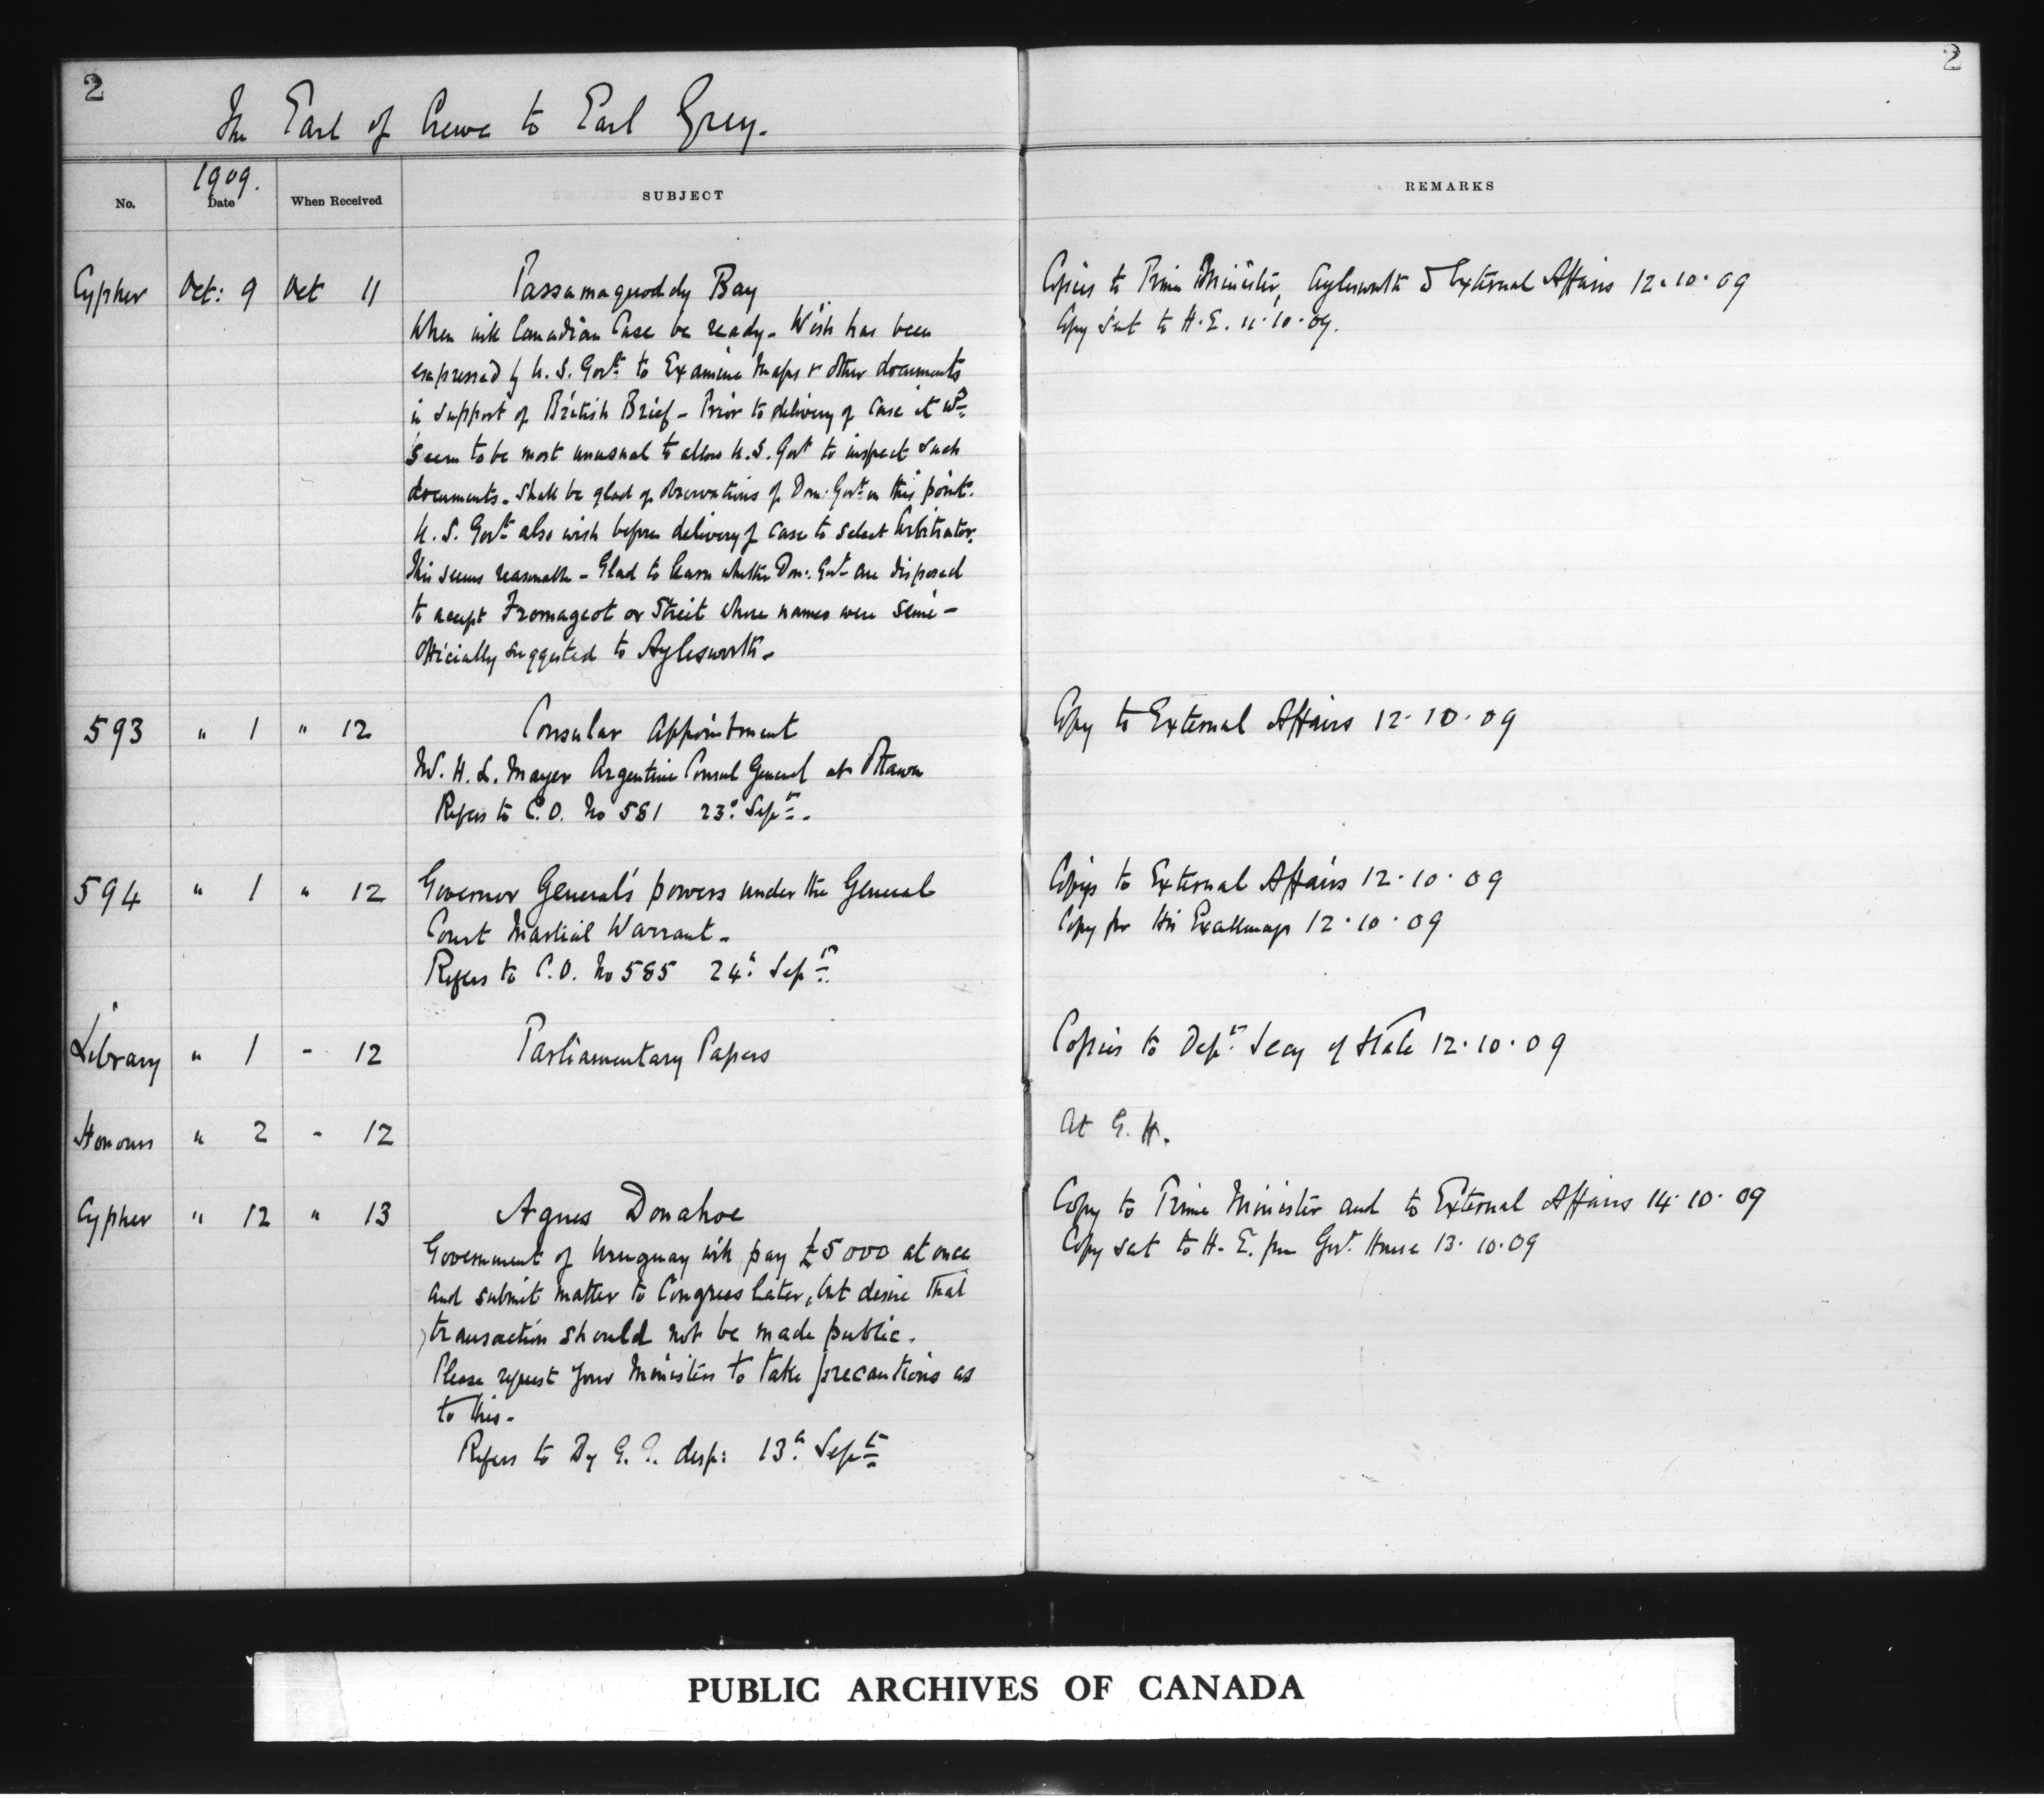 2
2
The Earl of Crewe to Earl Grey.
No.
1909.
Date
When Received
SUBJECT
REMARKS
Cypher Oct: 9 Oct 11 Passamaquoddy Bay
Copies to Prime Minister, Aylesworth & External Affairs 12.10.09
When will Canadian Case be ready - Wish has been
Copy sent to H.E. 11.10.09.
expressed by U.S. Govt. to Examine Maps & other documents
in support of British Brief - Prior to delivery of Case it wd.
seem to be most unusual to allow U.S. Govt to inspect such
documents. Shall be glad of observations of Dom: Govt. on this point.
U.S. Govt. also wish before delivery of case to select Arbitrator.
This seems reasonable - Glad to learn whether Dom: Govt. are disposed
to accept Fromageot or Streit whose names were semi-
officially suggested to Aylesworth -
593 " 1 " 12 Consular Appointment
Copy to External Affairs 12.10.09
H. L. Mayer Argentine Consul General at Ottawa
Refers to C.O. No 581 23d Sept.
594 " 1 " 12 Governor General's powers under the General
Copies to External Affairs 12.10.09
Court Martial Warrant -
Copy for His Excellency 12.10.09
Refers to C.O. No 585 24th Sept.
Library " 1 - 12 Parliamentary Papers
Copies to Dept. Secy of State 12.10.09
Honours " 2 - 12
At G.H.
Cypher " 12 " 13 Agnes Donahoe
Copy to Prime Minister and to External Affairs 14.10.09
Government of Uruguay will pay £5000 at once
Copy sent to H.E. from Govt. House 13.10.09
and submit matter to Congress later, but desire that
transaction should not be made public.
Please request your Ministers to take precautions as
to this -
Refers to Dy G.G. desp: 13th Sept.
PUBLIC ARCHIVES OF CANADA